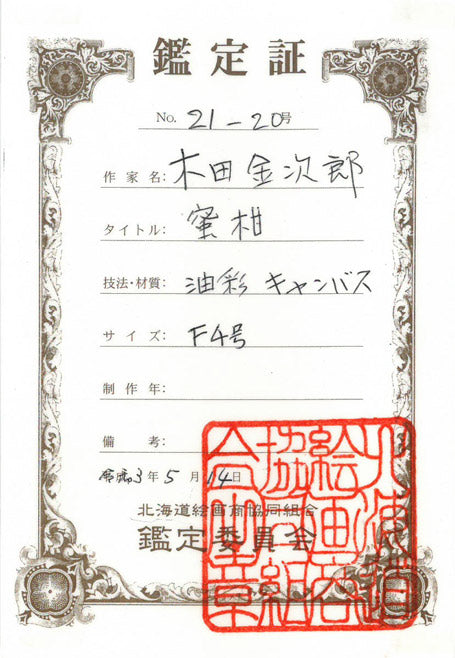 鑑定証
No. 21-20号
作家名: 木田金次郎
タイトル: 蜜柑
技法・材質: 油彩 キャンバス
サイズ: F4号
制作年:
備考:
令和3年5月14日
北海道絵画商協同組合
鑑定委員会